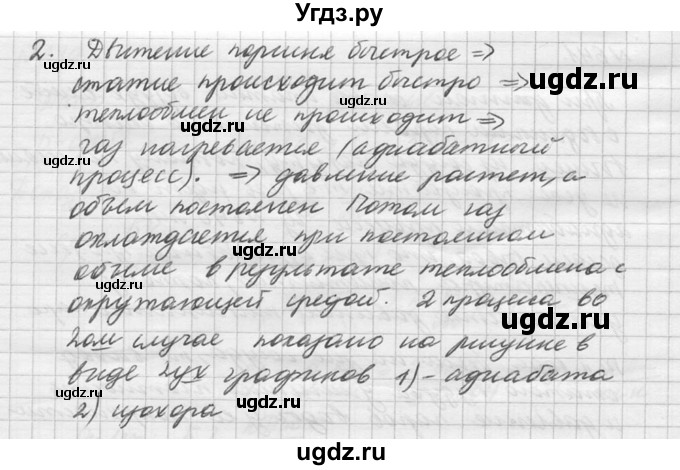 Угдз.ру
2. Движение поршня быстрое =>
сжатие происходит быстро =>
теплообмен не происходит =>
газ нагревается (адиабатный
процесс). => давление растет, а
объем постоянен Потом газ
охлаждается при постоянном
объеме в результате теплообмена с
окружающей средой. 2 процеса во
2ом случае показано на рисунке в
виде 2ух графиков 1) - адиабата
2) изохора
ugdz.ru
ugdz.ru
ugdz.ru
ugdz.ru
ugdz.ru
ugdz.ru
ugdz.ru
ugdz.ru
ugdz.ru
ugdz.ru
ugdz.ru
ugdz.ru
ugdz.ru
ugdz.ru